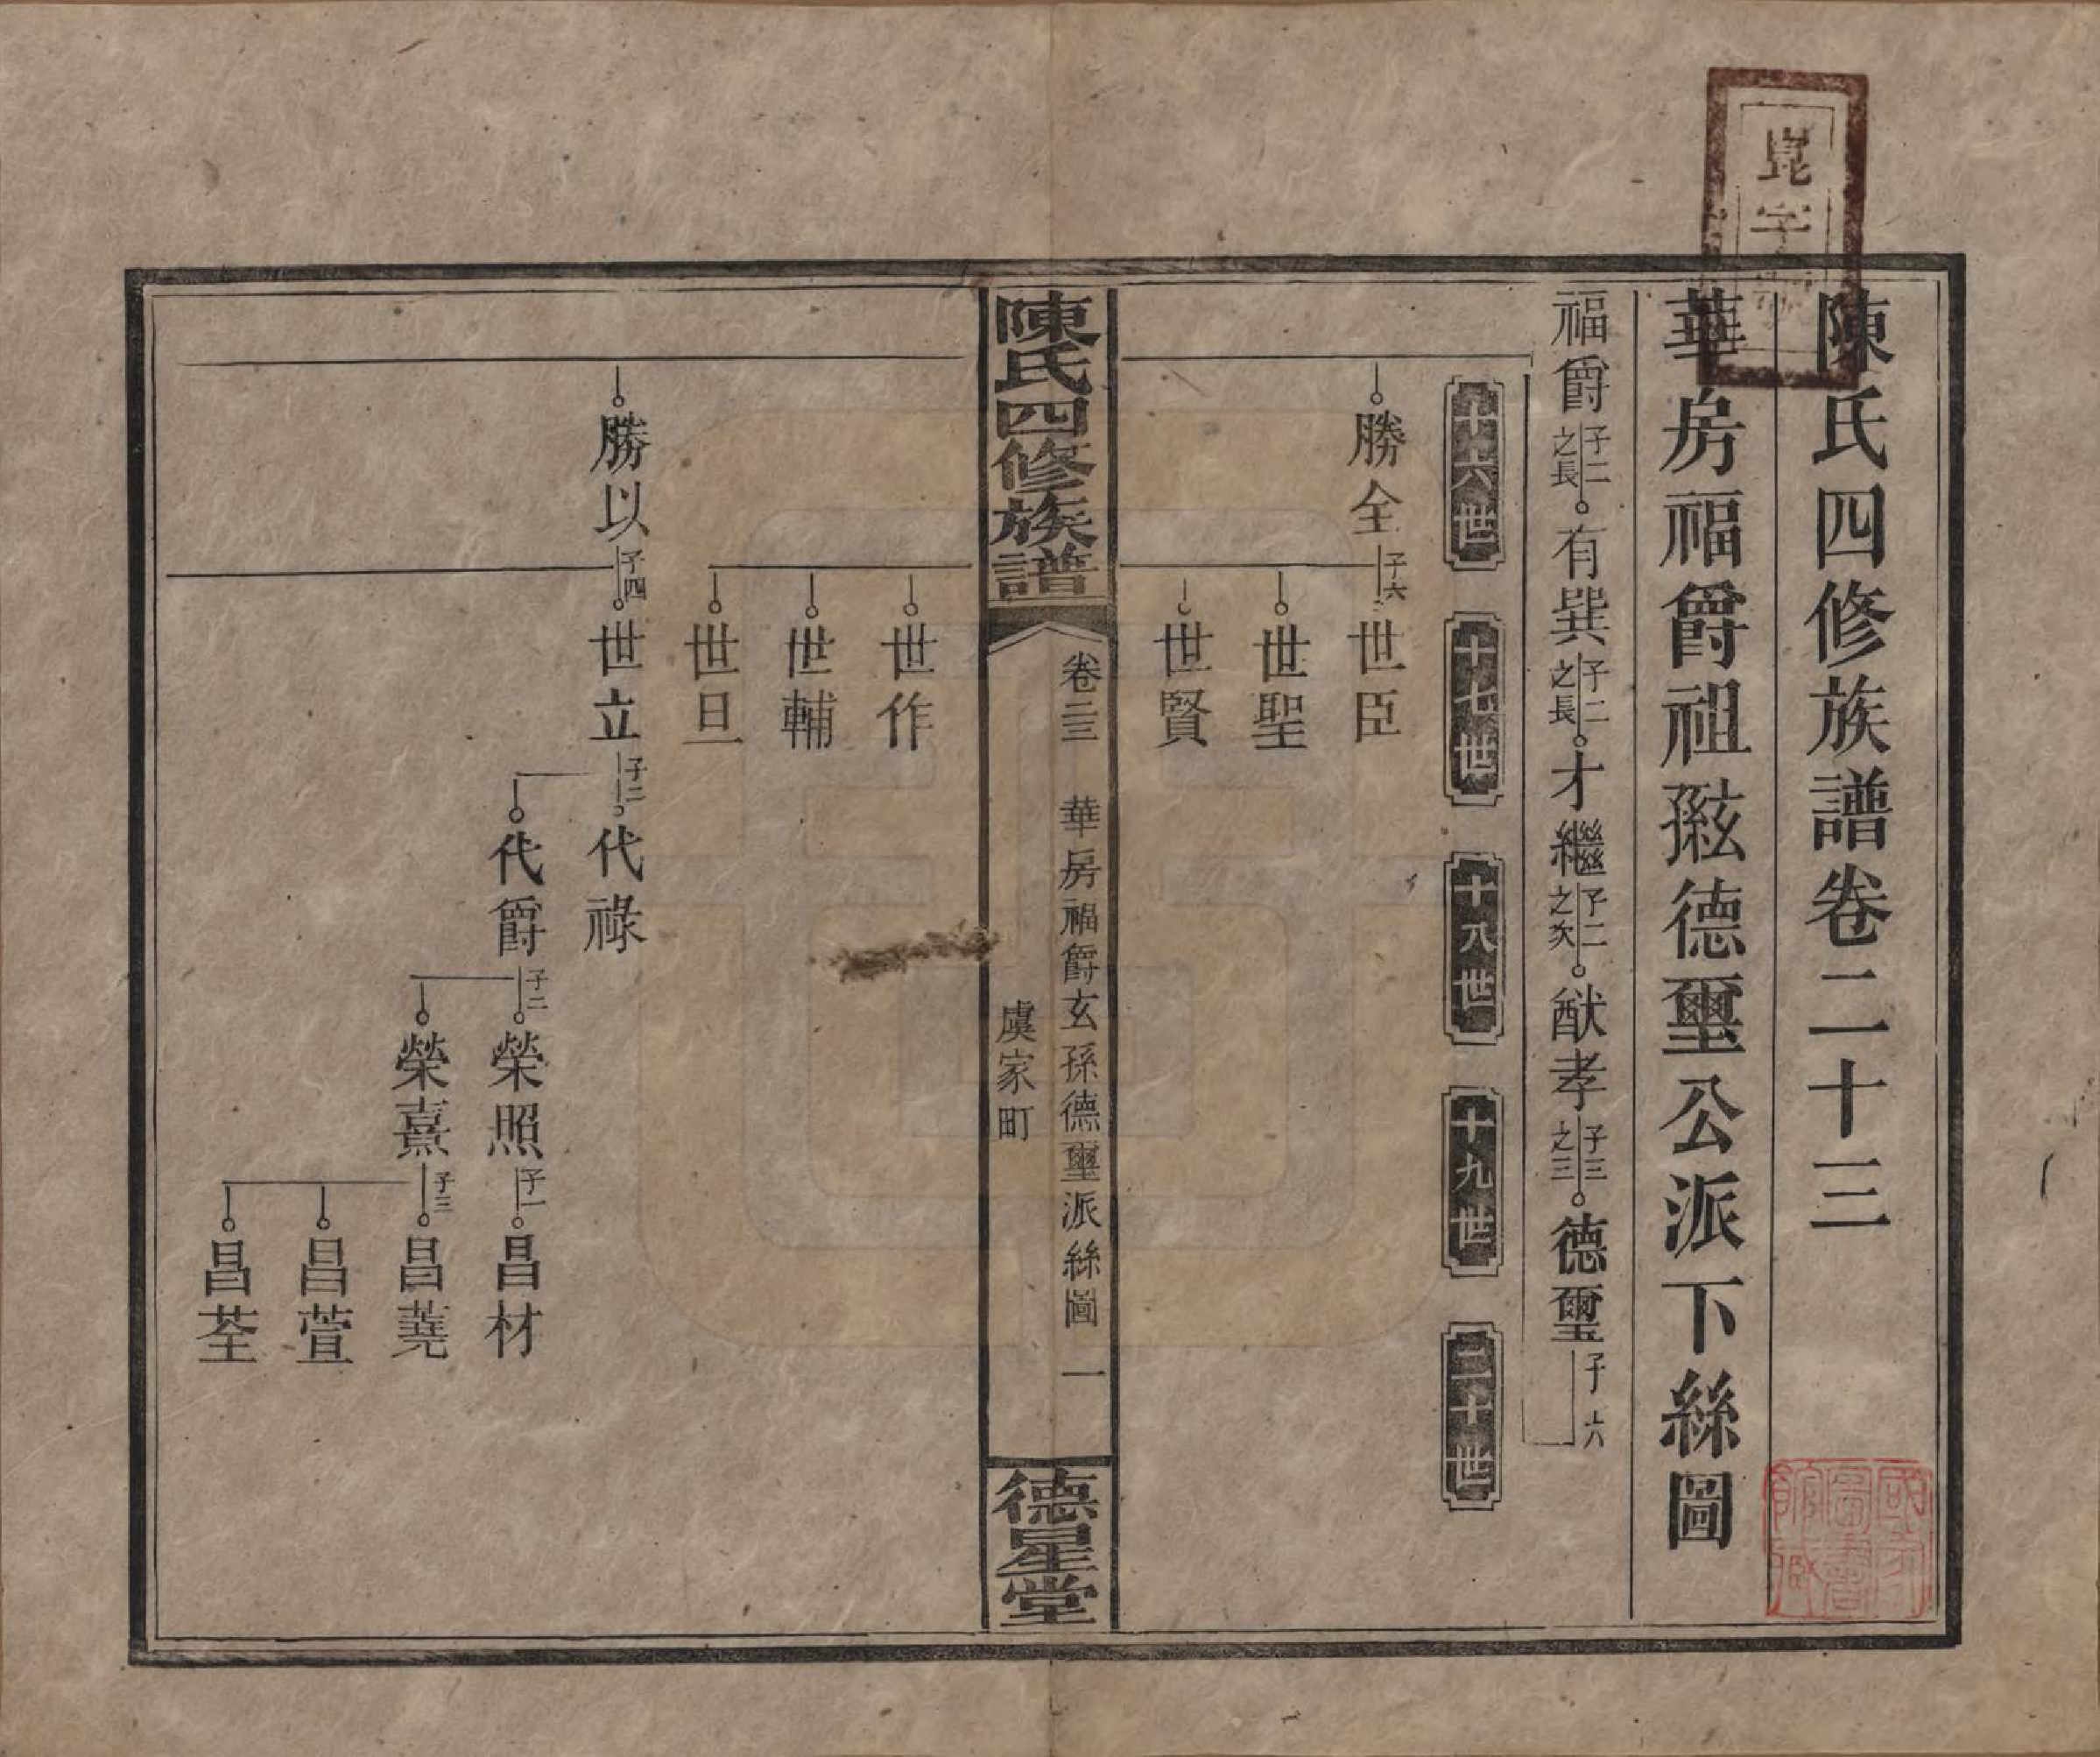 陳氏四修族譜卷二十三
華房福爵祖𤣥孫德璽公派下絲圖
福爵
子二
之長
有巽
子二
之長
才繼
子二
之次
猷孝
子三
之三
德璽
子六
十六世
十七世
十八世
十九世
二十世
勝全
子六
世臣
世聖
世賢
陳氏四修族譜
卷二三
華房福爵玄孫德璽派絲圖
一
虞家町
德星堂
世作
世輔
世旦
勝以
子四
世立
子二
代祿
代爵
子二
榮照
子一
昌材
榮熹
子三
昌蕘
昌萱
昌荃
崑字
國家圖書館藏